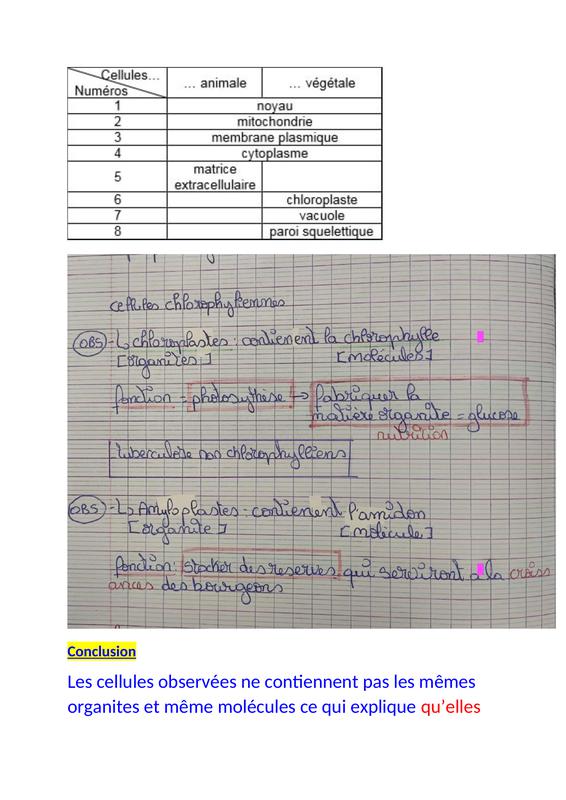 Cellules…
Numéros
… animale
… végétale
1 noyau
2 mitochondrie
3 membrane plasmique
4 cytoplasme
5 matrice extracellulaire
6 chloroplaste
7 vacuole
8 paroi squelettique
cellules chlorophylliennes
OBS -↳ chloroplastes : contiennent la chlorophylle
[organites] [molécules]
fonction = photosythèse → Fabriquer la
matière organite = glucose
nutrition
tubercule non chlorophylliens
OBS -↳ Amyloplastes : contiennent l'amidon
[organite] [molécule]
fonction : stocker des reserves qui serviront a la croiss
ances des bourgeons
Conclusion
Les cellules observées ne contiennent pas les mêmes
organites et même molécules ce qui explique qu'elles